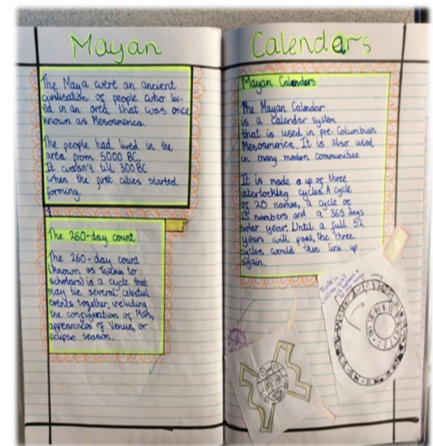 Mayan Calendars
The Maya were an ancient
civilisation of people who liv-
ed in an area that was once
known as Mesoamerica.
The people had lived in the
area from 5000 BC.
It wasn't till 300BC
when the first cities started
forming.
The 260-day count
The 260-day count
(known as to
scholars) is a cycle that
may tie several celestial
events together, including
the configuration of Mars,
appearances of Venus, or
eclipse season.
Mayan Calendars
The Mayan Calendar
is a calendar system
that is used in pre-Columbian
Mesoamerica. It is also used
in many modern communities
It is made up of three
interlocking cycles. A cycle
of 20 names, a cycle of
13 numbers and a 365 days
solar year. Until a full 52
years will pass, the three
cycles would then line up
again.